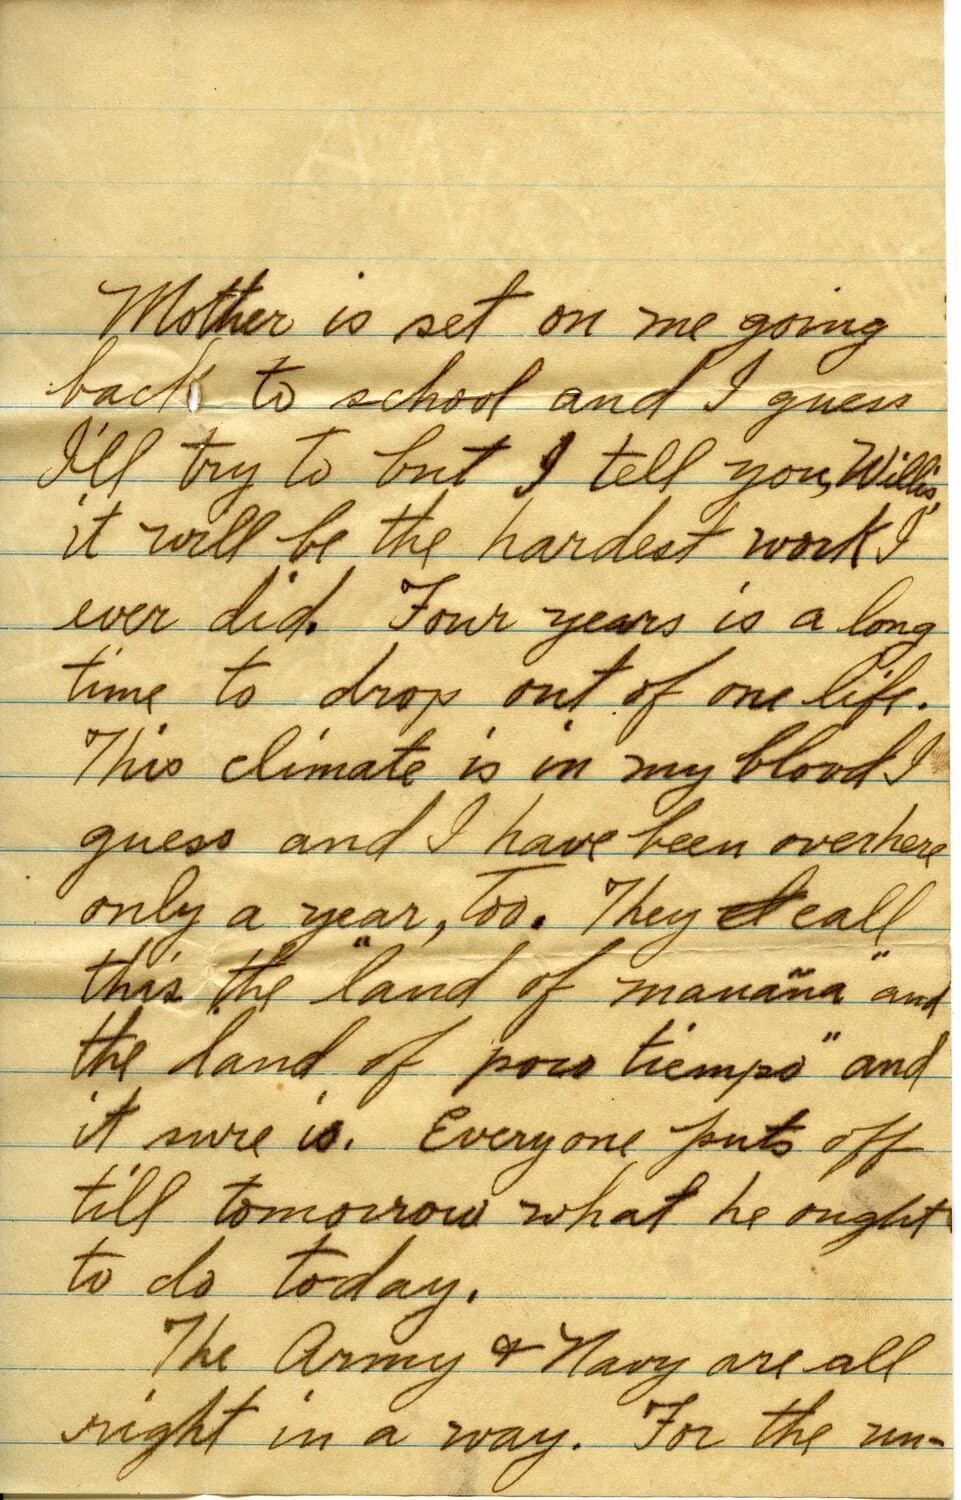 Mother is set on me going
back to school and I guess
I'll try to but I tell you, Willis,
it will be the hardest work I
ever did. Four years is a long
time to drop out of one life.
This climate is in my blood I
guess and I have been overhere
only a year, too. They call
this the "land of mañana" and
the land of poco tiempo" and
it sure is. Everyone puts off
till tomorrow what he ought
to do today.
The Army & Navy are all
right in a way. For the un-